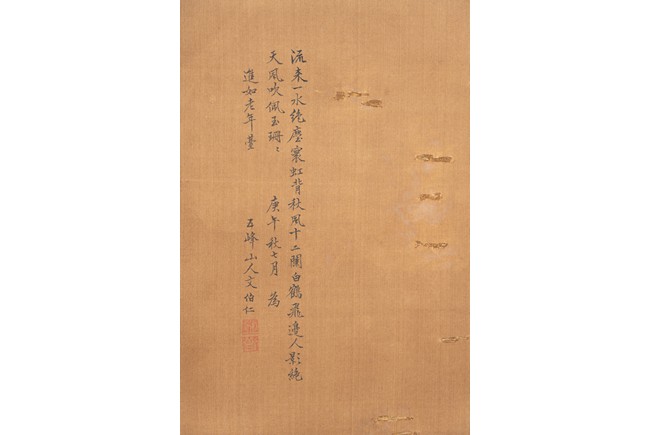 流来一水绝塵寰虹背秋風十二闌白鶴飛邊人影絶
天風吹佩玉珊〻 庚午秋七月 為
進如老年臺
五峰山人文伯仁